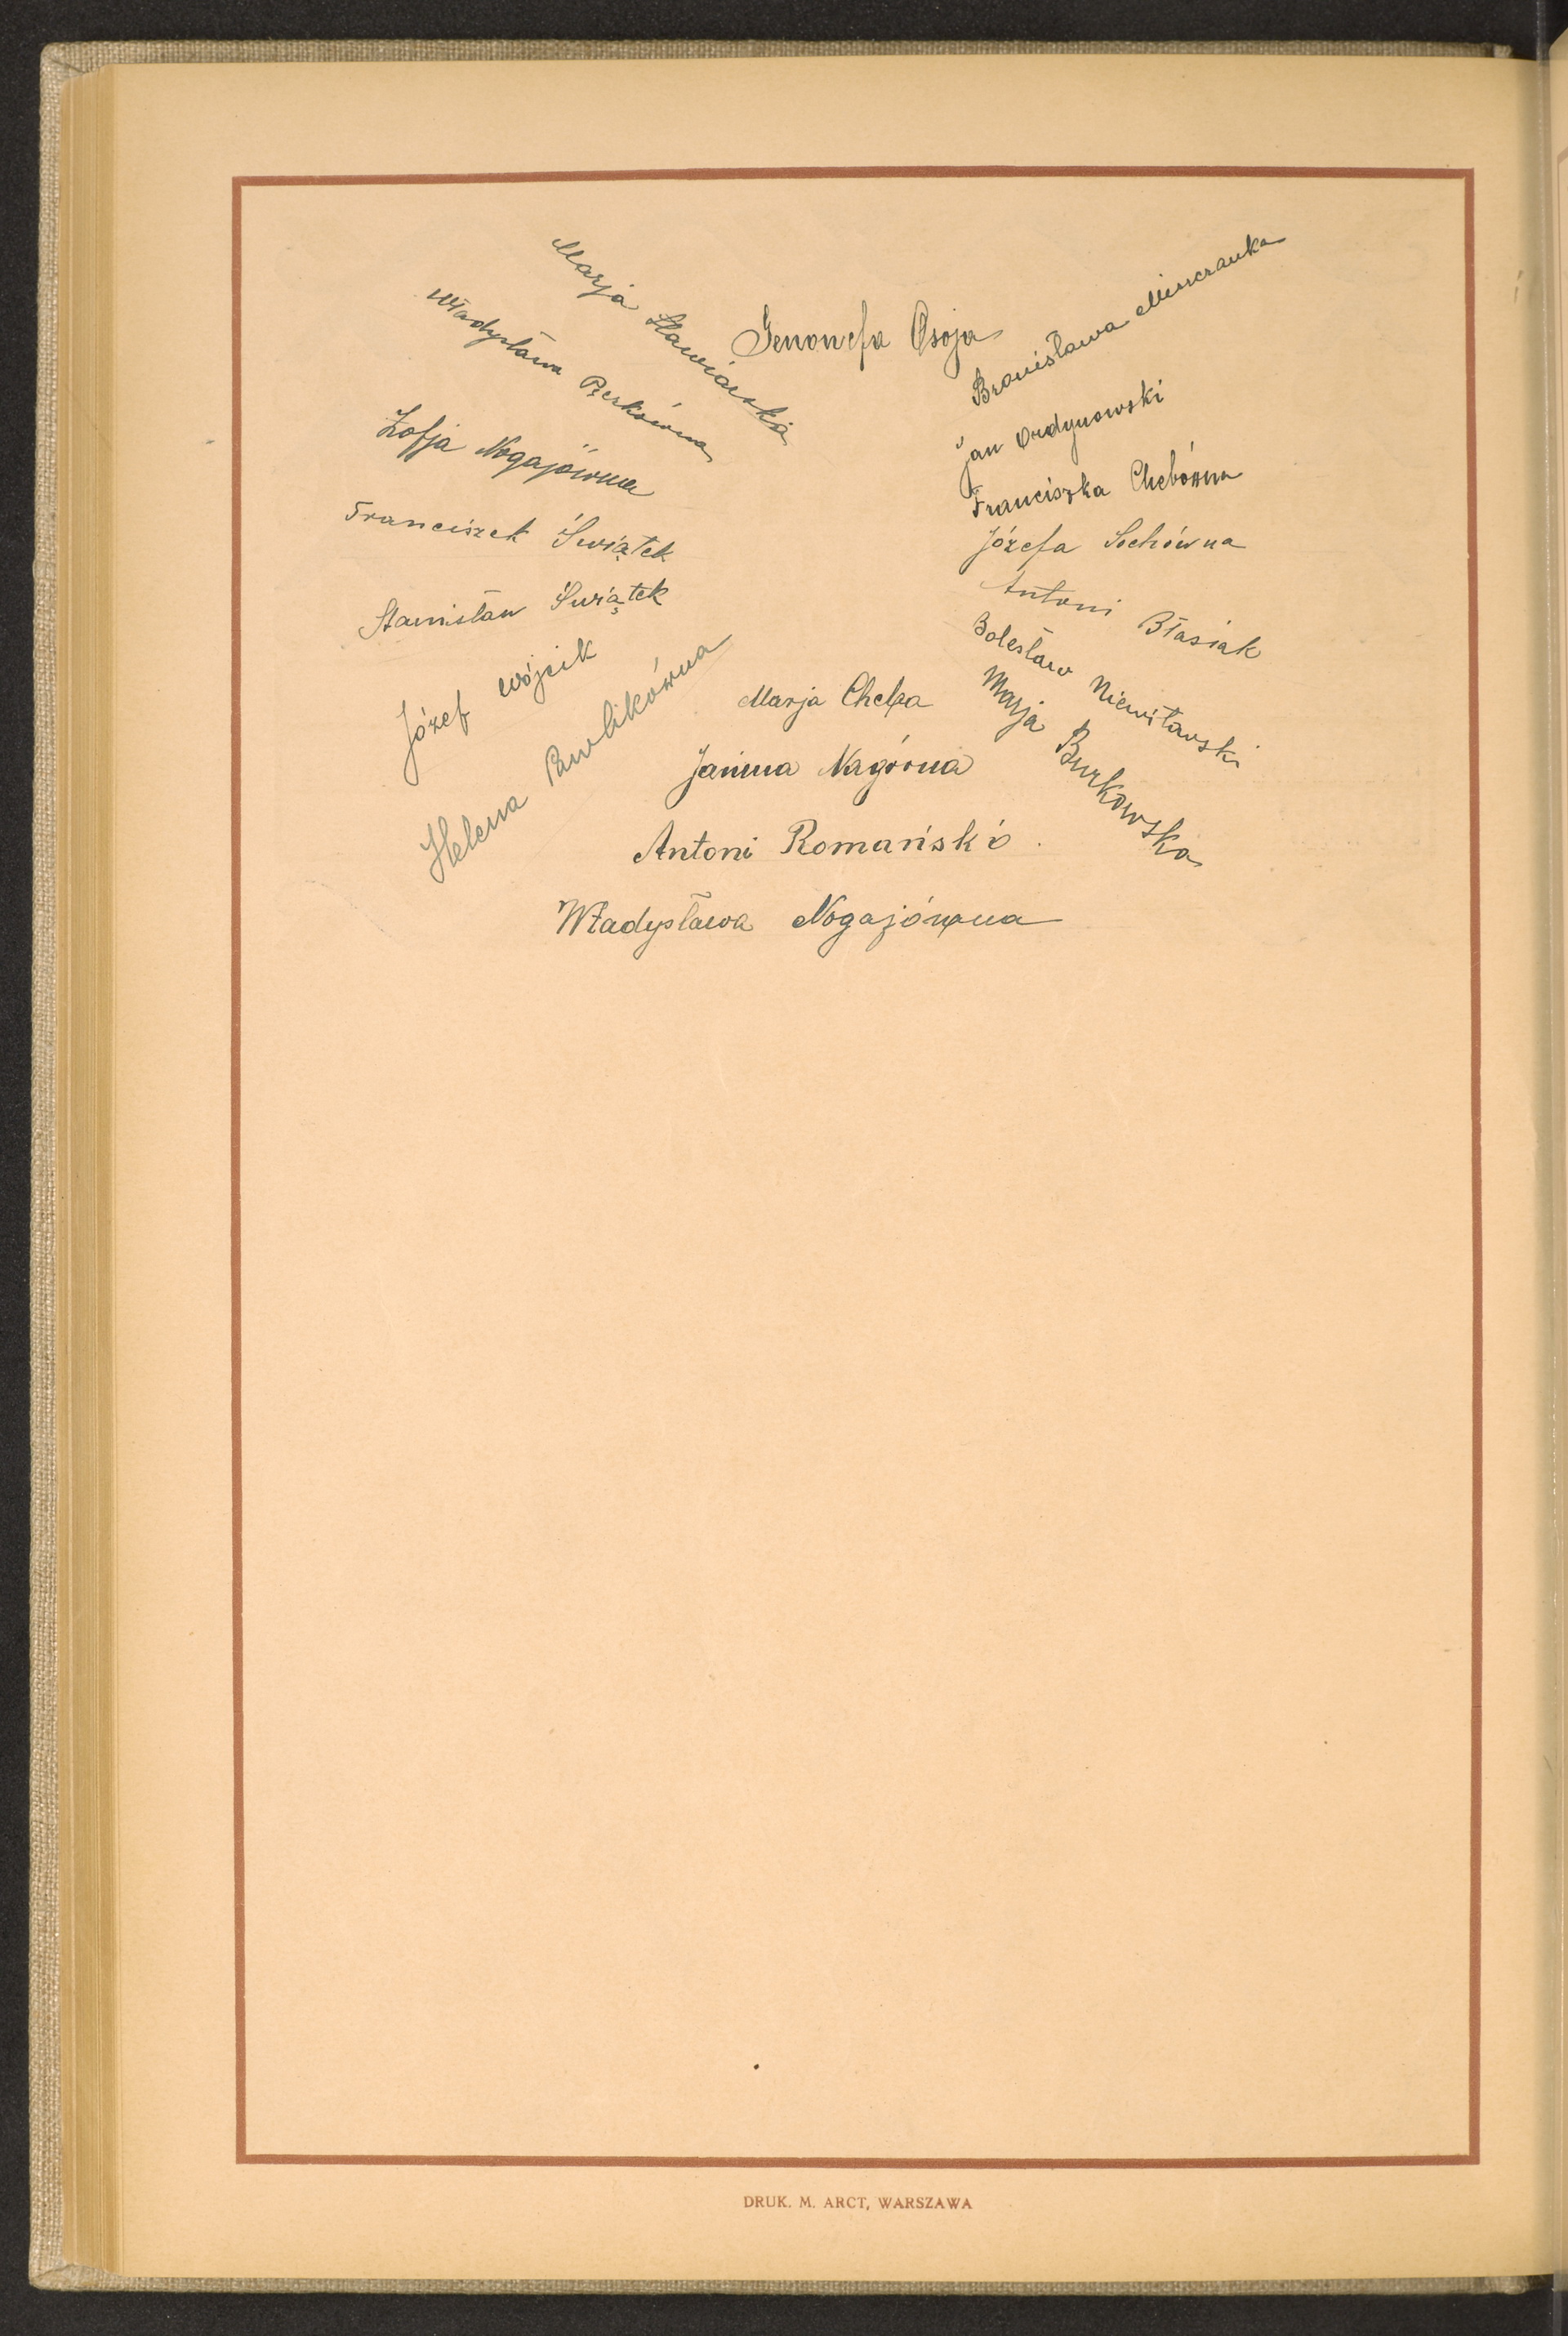 Marja Sławiańska
Władysława Berkówna
Zofja Nogajówna
Franciszek Świątek
Stanisław Świątek
Józef Wójcik
Helena Pawlikówna
Genowefa Osoja
Marja Cheba
Janina Nagórna
Antoni Romański
Władysława Nogajówna
Bronisława
Jan Ordynowski
Franciszka Chebówna
Józefa Sochówna
Antoni Błasiak
Bolesław Niewitawski
Marja Burkowska
DRUK. M. ARCT, WARSZAWA